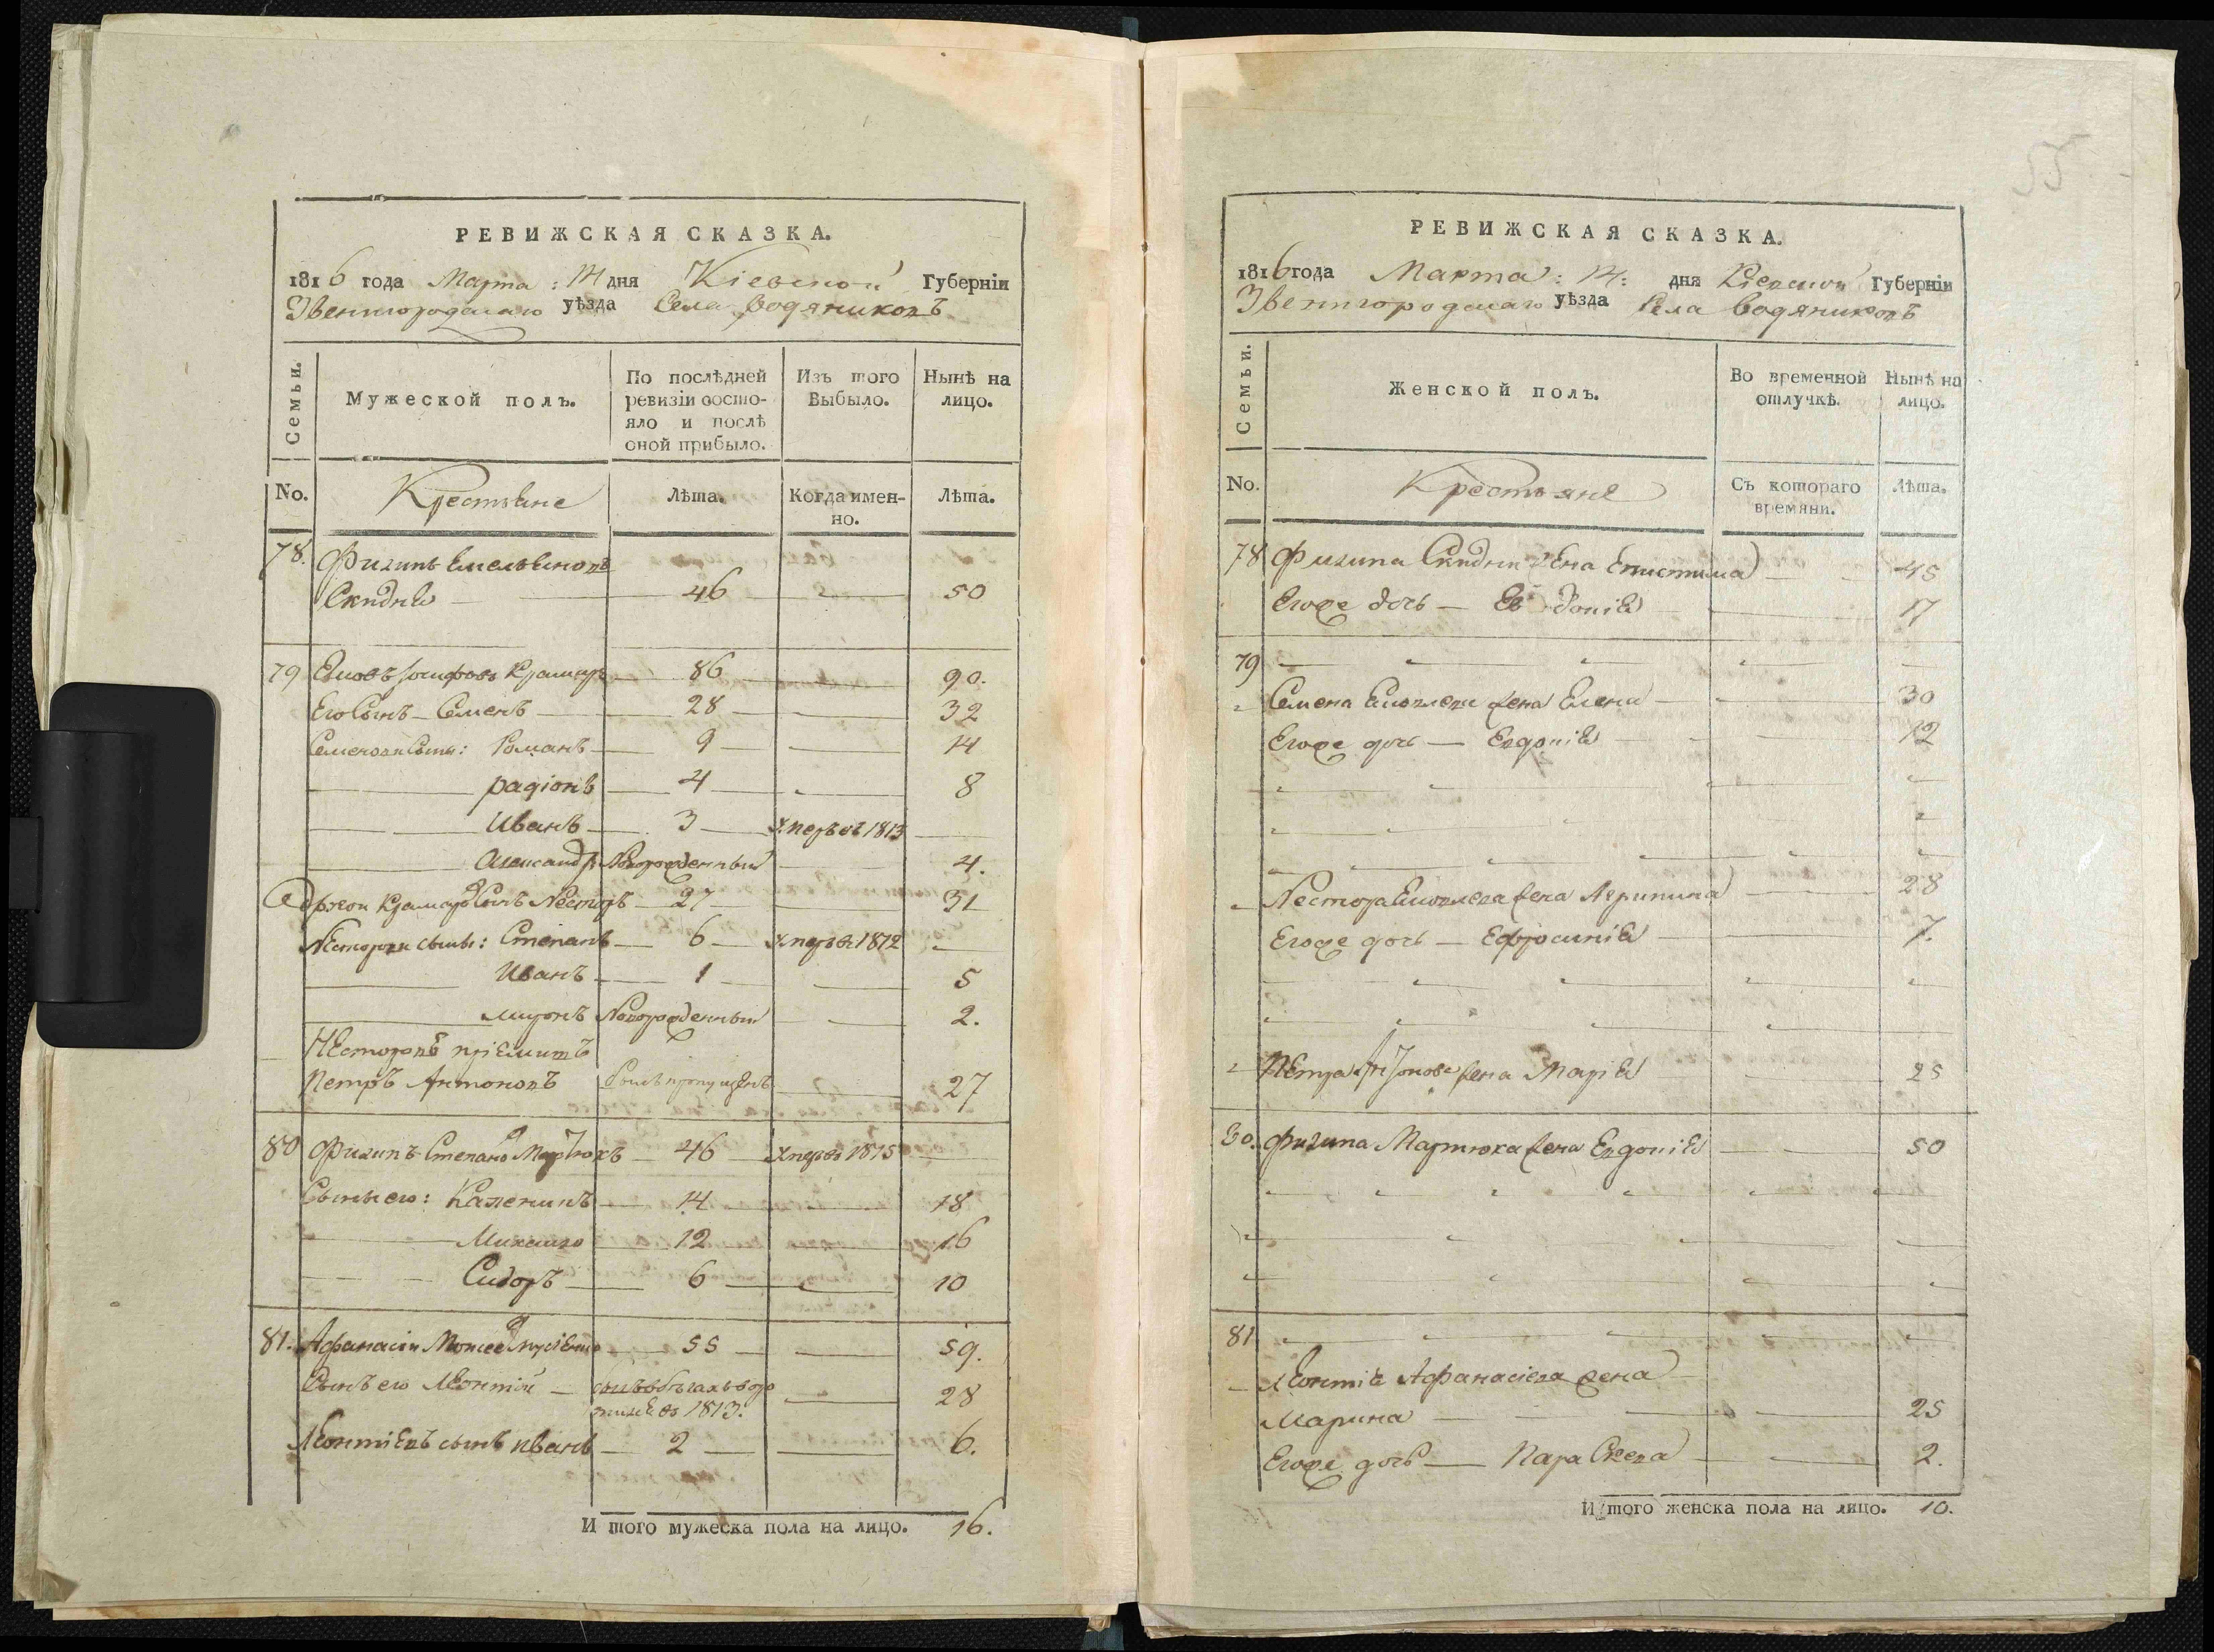 РЕВИЖСКАЯ СКАЗКА.
1816 года Марта: 14 дня Кіевской Губерніи
Звенигородскаго уѣзда Села Водяниковъ
Семьи.
Мужеской полъ.
По послѣдней ревизіи состояло и послѣ оной прибыло.
Изъ того Выбыло.
Нынѣ на лицо.
No.
Крестьяне
Лѣта.
Когда именно.
Лѣта.
78. Филипъ Емельяновъ
Скидня — 46 — 50
79 Іосифовъ Крамаръ — 86 — 90.
Его Сынъ — Семенъ — 28 — 32
Семеновы Сыны: Романъ — 9 — 14
радіонъ — 4 — 8
Иванъ — 3 — умеръ въ 1813 —
Александръ Новорожденный — 4.
Крамаря Сынъ Несторъ — 27 — 31
Несторовы сыны: Степанъ — 6 — умеръ въ 1812 —
Иванъ — 1 — 5
миронъ Новорожденный — 2.
Несторовъ пріемишъ
Петръ Антоновъ былъ пропущенъ — 27
80 Филипъ Степановъ Мартюхъ — 46 — умеръ въ 1815 —
Сыны его: Каленикъ — 14 — 18
Михайло — 12 — 16
Сидоръ — 6 — 10
81. Афанасій — 55 — 59.
Сынъ его Леонтій — въ бѣгахъ
въ 1813. — 28
Леонтіевъ сынъ иванъ — 2 — 6.
И того мужеска пола на лицо. 16.
55
РЕВИЖСКАЯ СКАЗКА.
1816 года Марта: 14: дня Кіевской Губерніи
Звенигородскаго уѣзда Села Водяниковъ
Семьи.
Женской полъ.
Во временной отлучкѣ.
Нынѣ на лицо.
No.
Крестьяне
Съ котораго времяни.
Лѣта.
78 Филипа Скидни жена Епистима — 45
Егоже дочь — Евдокія — 17
79
Семена жена Елена — 30
Егоже дочь — Евдокія — 12
Нестора жена Агрипина — 28
Егоже дочь — Ефросинія — 7.
Петра Антонова жена Марія — 25
80. Филипа Мартюха жена Евдокія — 50
81
Леонтія Афанасіева жена
Марина — 25
Егоже дочь — Параскева — 2.
И того женска пола на лицо. 10.